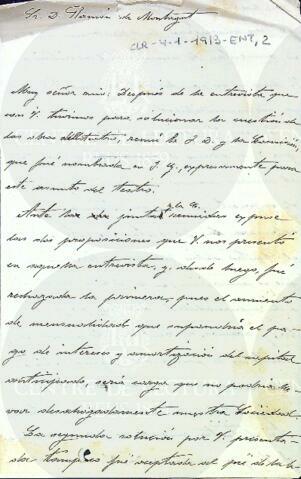 Sr. D. Ramón de Montagut
CLR-4-1-1913-ENT, 2
Muy señor mio: Después de la entrevista que
con V. tuvimos para solucionar la cuestión de
las obras del teatro, reuní la J. D. y la Comisión,
que fué nombrada en J. G. expresamente para
este asunto del teatro.
Ante la junta y la comisión expuse
las dos proposiciones que V. nos presentó
en aquella entrevista, y, desde luego, fué
rechazada la primera, pues el aumento
de mensualidad que supondría el pa-
go de intereses y amortización del capital
anticipado, sería carga que no podría lle-
var desahogadamente nuestra Sociedad.
La segunda solución por V. presenta-
da tampoco fué aceptada